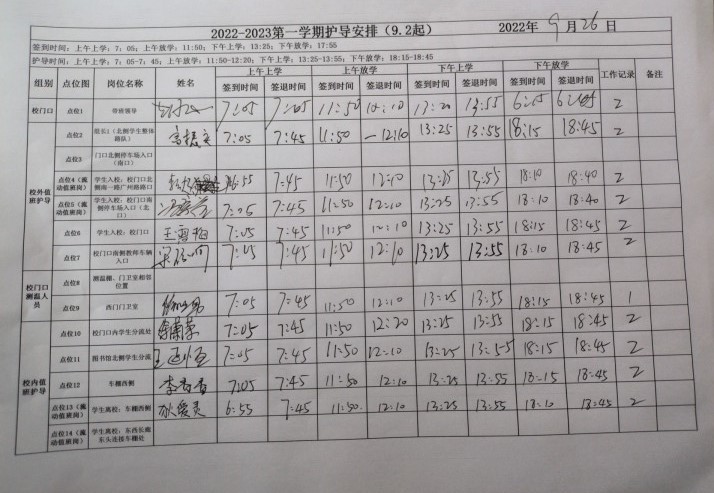 2022-2023第一学期护导安排（9.2起） 2022年 9月26日
签到时间：上午上学：7：05；上午放学：11:50；下午上学：13:25；下午放学：17:55
护导时间：上午上学：7:05-7：45；上午放学：11:50-12:20；下午上学：13:25-13:55；下午放学：18:15-18:45
组别 点位图 岗位名称 姓名 上午上学 上午放学 下午上学 下午放学 工作记录 备注
签到时间 签退时间 签到时间 签退时间 签到时间 签退时间 签到时间 签退时间
校门口 点位1 带班领导 7:05 11:50 12:10 13:20 13:55 6:15 2
校外值班护导
点位2 组长1（北侧学生整体路队） 7:05 7:45 11:50 12:10 13:25 13:55 18:15 18:45 2
点位3 门口北侧停车场入口（南口）
点位4（流动值班岗） 学生入校：校门口北侧南一路广州路路口 6:55 7:45 11:50 12:10 13:25 13:55 18:10 18:40 2
点位5（流动值班岗） 学生入校：校门口南侧停车场入口（北口） 7:05 7:45 11:50 12:10 13:25 13:55 18:10 18:40 2
点位6 学生入校：校门口 7:05 7:45 11:50 12:10 13:25 13:55 18:15 18:45 2
点位7 校门口南侧教师车辆入口 7:05 7:45 11:50 12:10 13:25 13:55 18:10 18:45 2
校门口测温人员
点位8 测温棚、门卫室相邻位置
点位9 西门门卫室 7:05 7:45 11:50 12:10 13:25 13:55 18:15 18:45 1
校内值班护导
点位10 校门口内学生分流处 7:05 7:45 11:50 12:20 13:25 13:55 18:15 18:45 2
点位11 图书馆北侧学生分流 7:05 7:45 11:50 12:10 13:25 13:55 18:15 18:45 2
点位12 车棚西侧 李香香 7:05 7:45 11:50 12:10 13:25 13:55 18:15 18:45 2
点位13（流动值班岗） 学生离校：车棚西侧 狄爱灵 6:55 7:45 11:50 12:10 13:25 13:55 18:10 18:45 2
点位14（流动值班岗） 学生离校：东西长廊东头连接车棚处